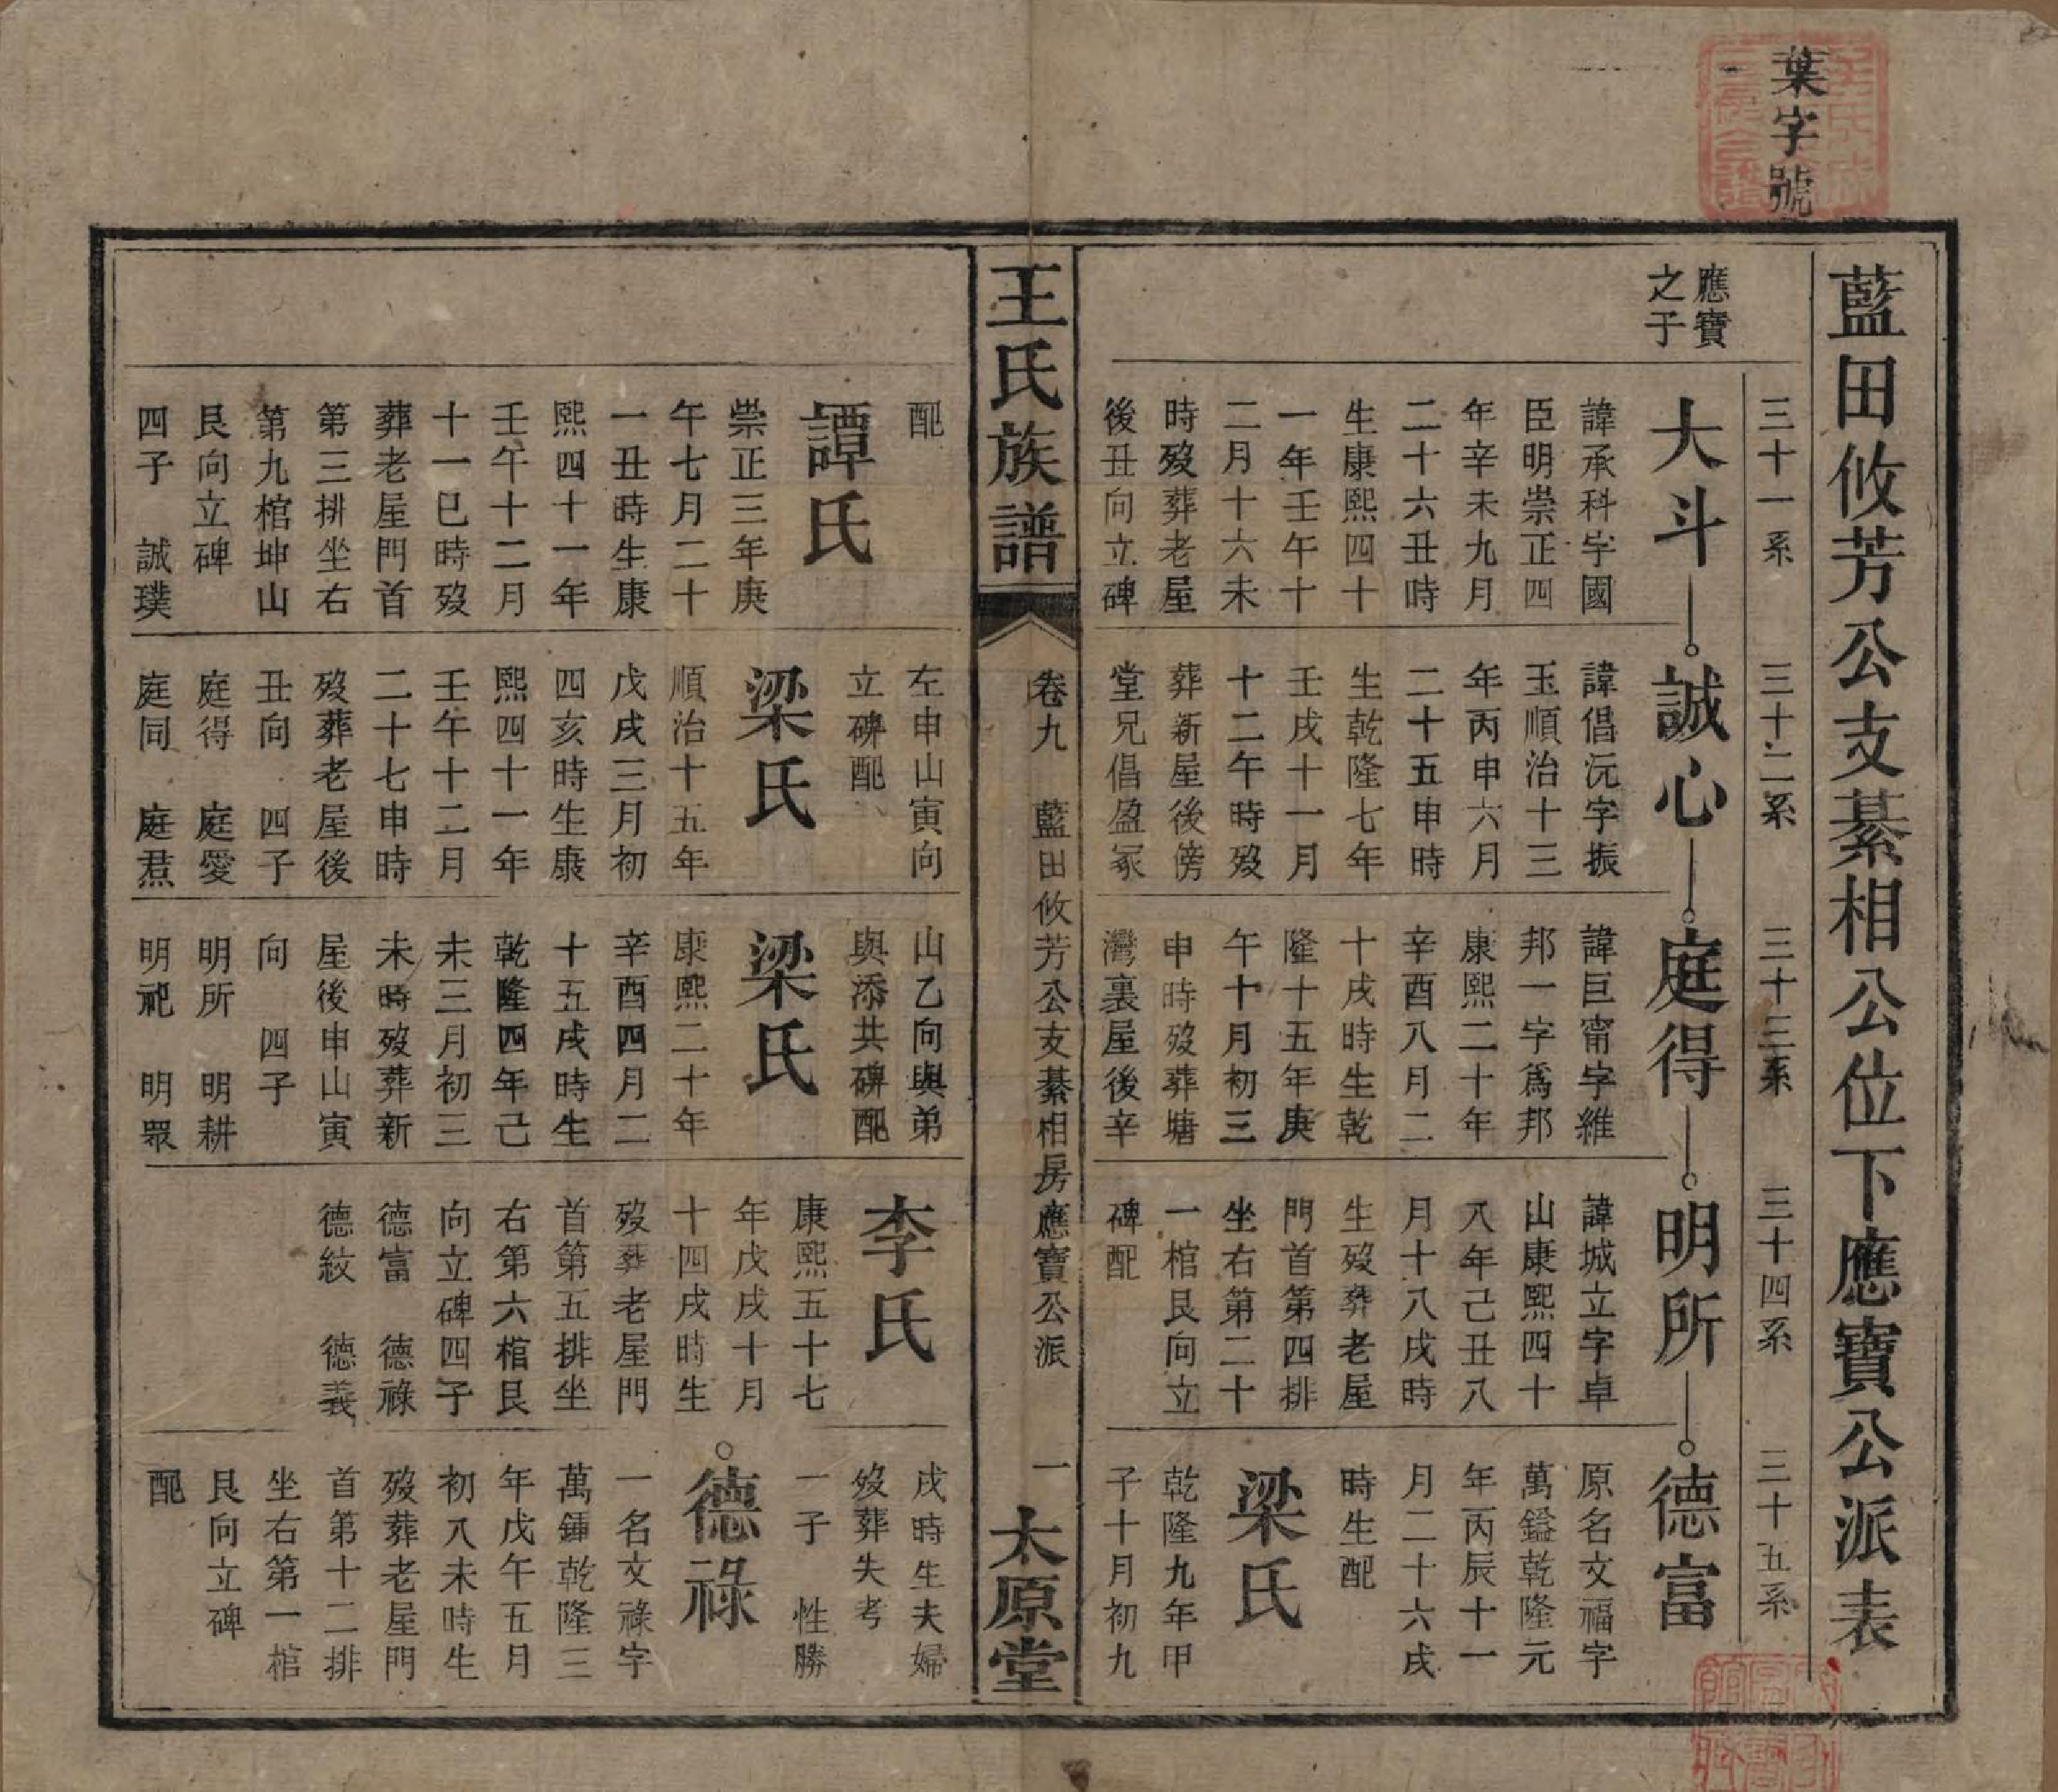 葉字號
藍田攸芳公支綦相公位下應寶公派表
三十一系
三十二系
三十三系
三十四系
三十五系
應寶
之子
大斗
諱承科字國
臣明崇正四
年辛未九月
二十六丑時
生康熙四十
一年壬午十
二月十六未
時歿葬老屋
後丑向立碑
配
譚氏
崇正三年庚
午七月二十
一丑時生康
熙四十一年
壬午十二月
十一巳時歿
葬老屋門首
第三排坐右
第九棺坤山
艮向立碑
四子 誠璞
誠心
諱倡沅字振
玉順治十三
年丙申六月
二十五申時
生乾隆七年
壬戌十一月
十二午時歿
葬新屋後傍
堂兄倡盈冢
左申山寅向
立碑配
梁氏
順治十五年
戊戌三月初
四亥時生康
熙四十一年
壬午十二月
二十七申時
歿葬老屋後
丑向 四子
庭得 庭愛
庭同 庭焄
庭得
諱巨甯字維
邦一字為邦
康熙二十年
辛酉八月二
十戌時生乾
隆十五年庚
午十月初三
申時歿葬塘
灣裏屋後辛
山乙向與弟
與添共碑配
梁氏
康熙二十年
辛酉四月二
十五戌時生
乾隆四年己
未三月初三
未時歿葬新
屋後申山寅
向 四子
明所 明耕
明祀 明眾
明所
諱城立字卓
山康熙四十
八年己丑八
月十八戌時
生歿葬老屋
門首第四排
坐右第二十
一棺艮向立
碑配
李氏
康熙五十七
年戊戌十月
十四戌時生
歿葬老屋門
首第五排坐
右第六棺艮
向立碑四子
德富 德祿
德紋 德義
德富
原名文福字
萬鎰乾隆元
年丙辰十一
月二十六戌
時生配
梁氏
乾隆九年甲
子十月初九
戌時生夫婦
歿葬失考
一子 性勝
德祿
一名文祿字
萬鍾乾隆三
年戊午五月
初八未時生
歿葬老屋門
首第十二排
坐右第一棺
艮向立碑
配
王氏族譜
卷九 藍田攸芳公支綦相房應寶公派
一
太原堂